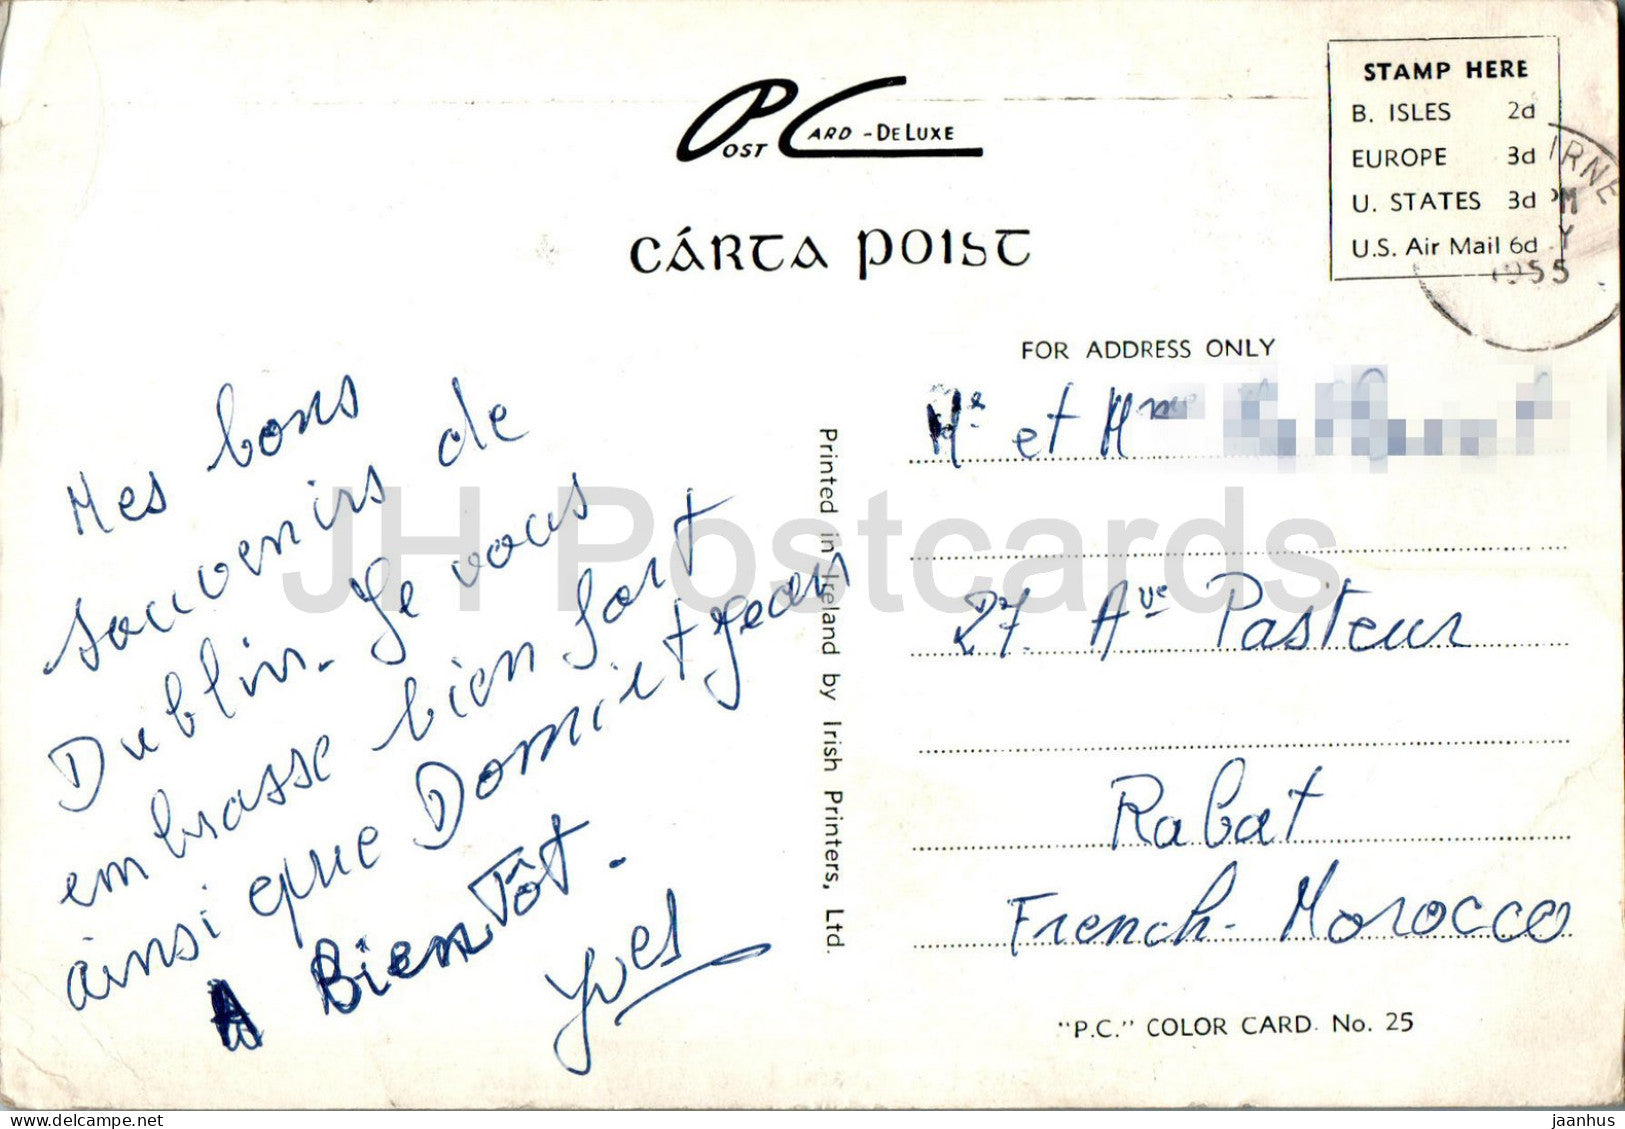 POST CARD - DE LUXE
CÁRTA POIST
STAMP HERE
B. ISLES 2d
EUROPE 3d
U. STATES 3d
U.S. Air Mail 6d
IRNE
PM
Y
1955
FOR ADDRESS ONLY
Mes bons
souvenirs de
Dublin. Je vous
embrasse bien fort
ainsi que Domi et Jean
A Bien Tôt.
Yves
Printed in Ireland by Irish Printers, Ltd.
Mr et Mme
27. Ave Pasteur
Rabat
French. Morocco
"P.C." COLOR CARD. No. 25
JH Postcards
delcampe.net
jaanhus